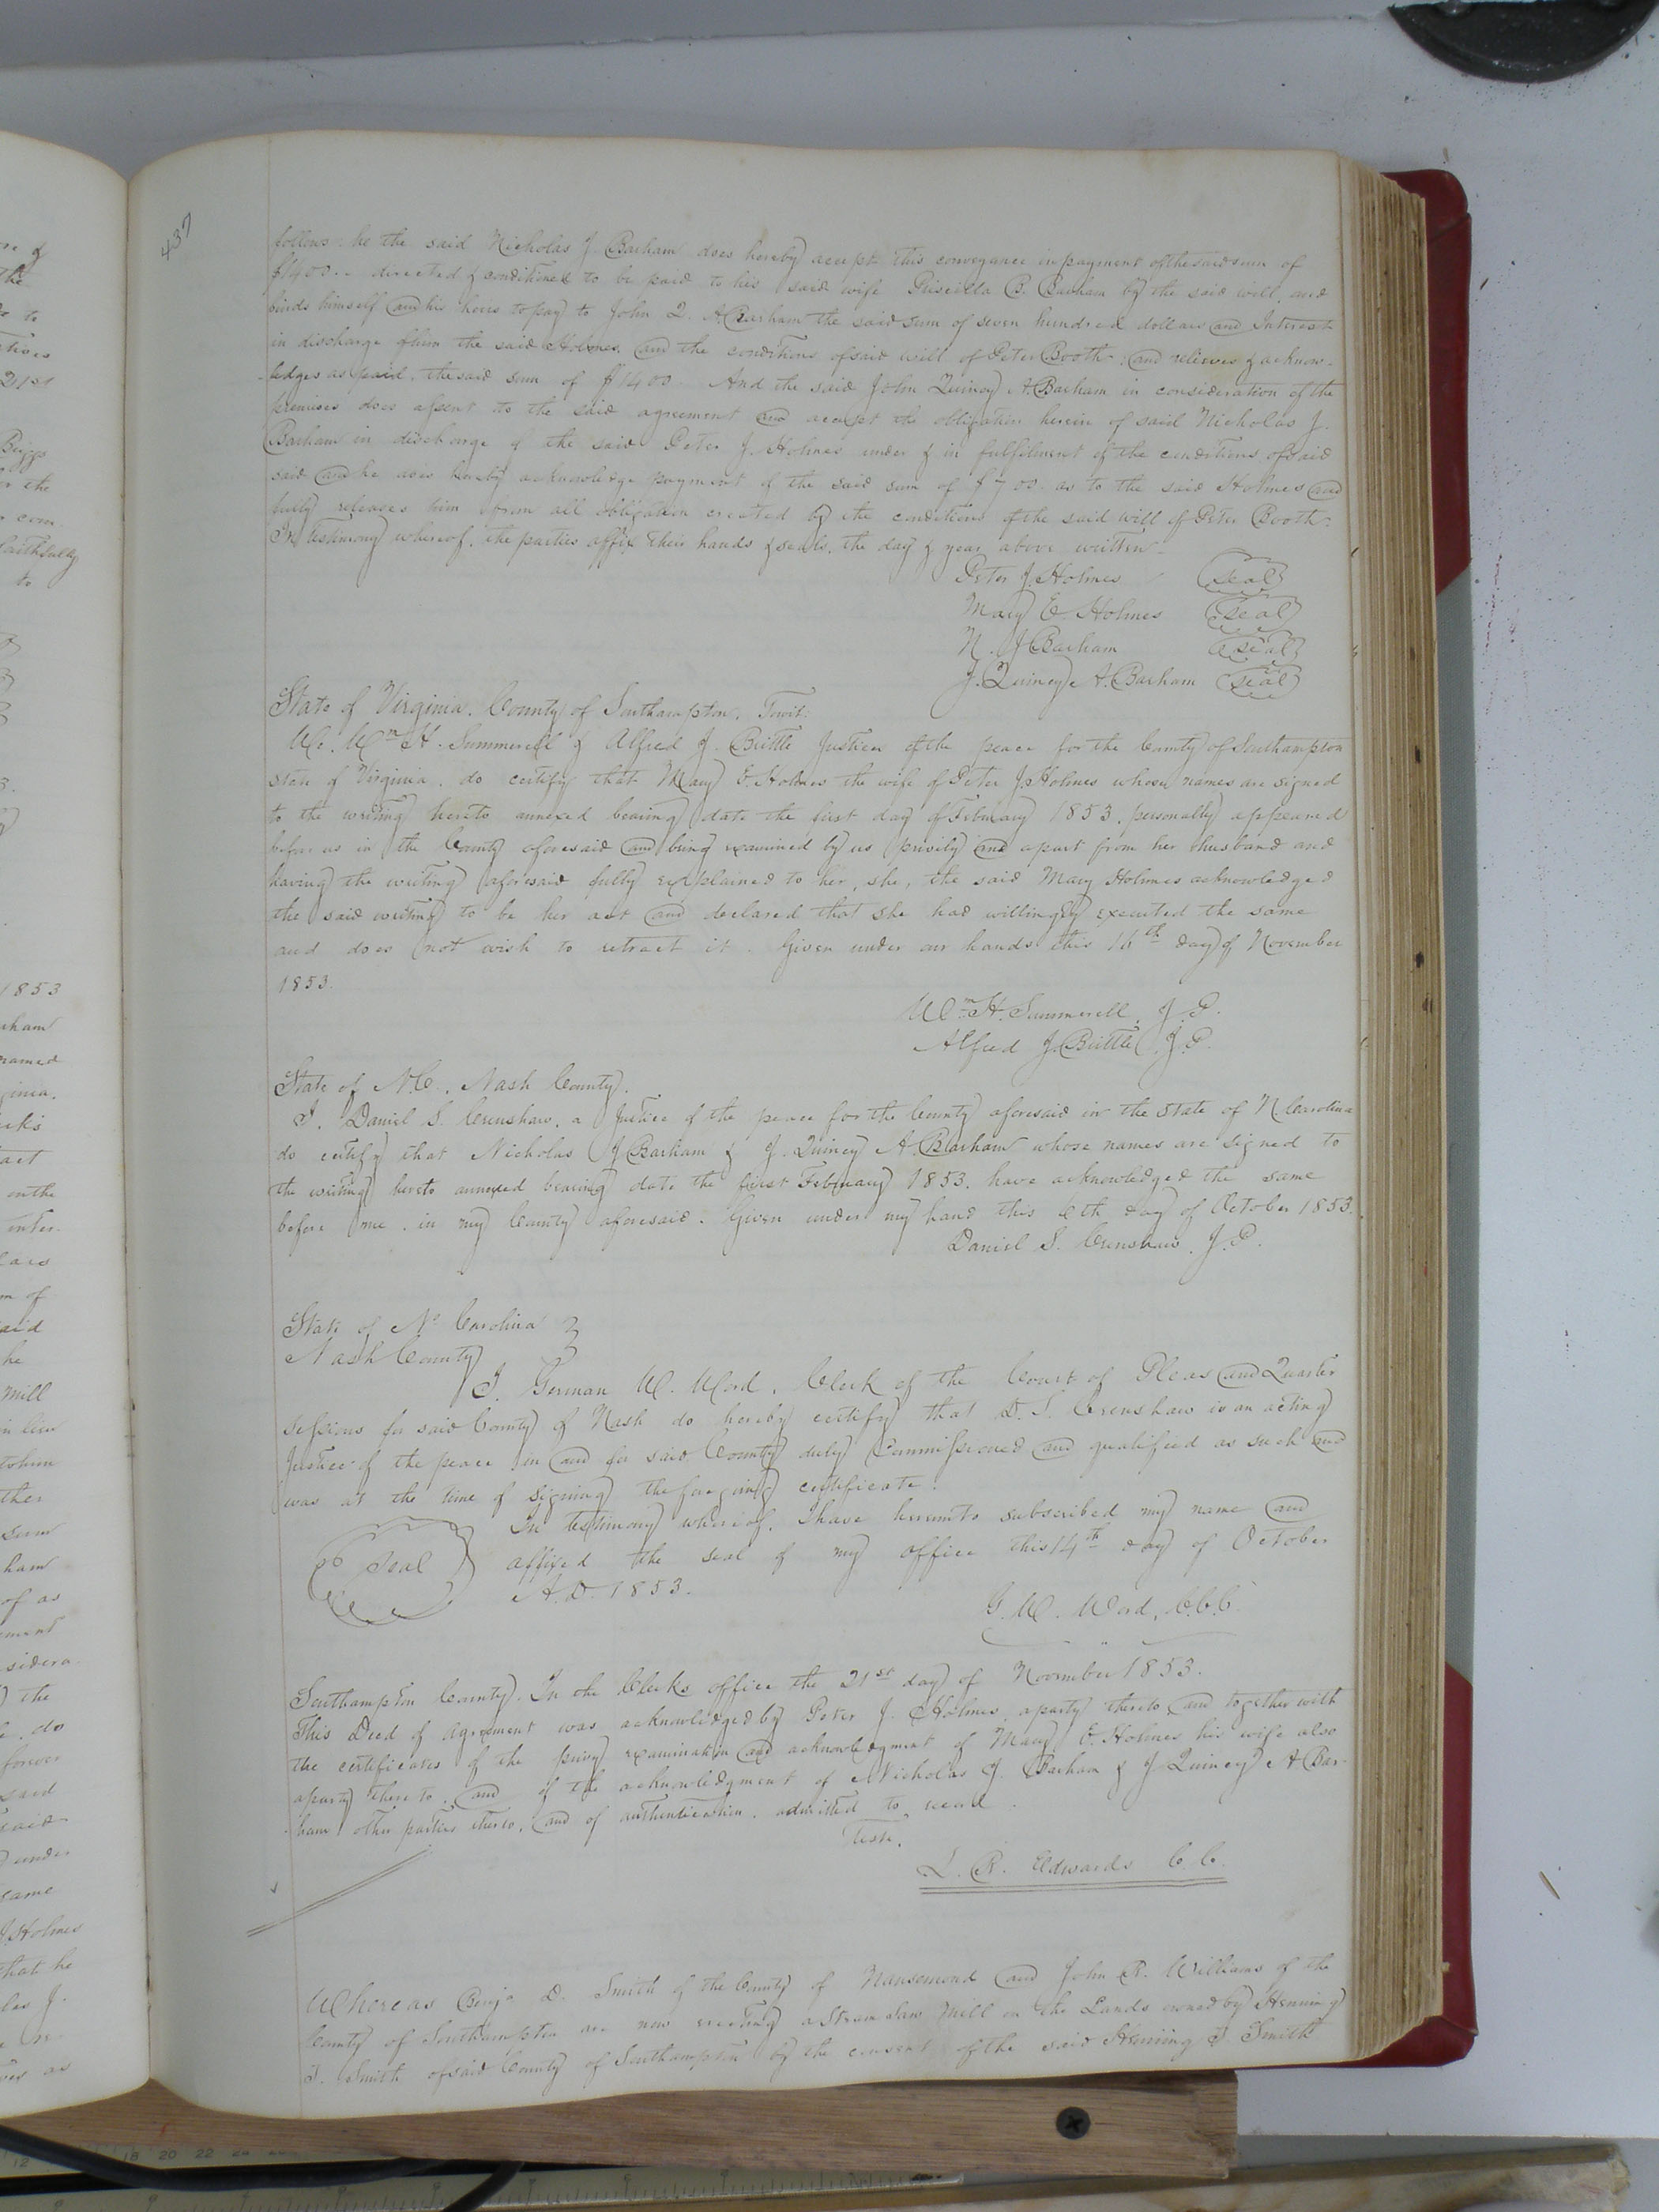 437
follows: he the said Nicholas J. Barham does hereby accept this conveyance in payment of the said sum of
$1400.. directed & conditioned to be paid to his said wife Priscilla B. Barham by the said will, and
binds himself and his heirs to pay to John Q. A Barham the said sum of seven hundred dollars and Interest
in discharge of him the said Holmes. and the conditions of said will of Peter Booth. and relieves & acknow-
-ledges as paid. the said sum of $1400. And the said John Quincy A. Barham in consideration of the
premises does assent to the said agreement and accept the obligation herein of said Nicholas J.
Barham in discharge of the said Peter J. Holmes under & in fulfilment of the conditions of said
said and he does hereby acknowledge payment of the said sum of $700. as to the said Holmes and
fully releases him from all obligation created by the conditions of the said will of Peter Booth.
In testimony whereof. the parties affix their hands & seals. the day & year above written
Peter J. Holmes (seal)
Mary E Holmes (seal)
N. J Barham (seal)
J. Quincy A. Barham (seal)
State of Virginia. County of Southampton. Towit:
We. Wm H. Summerell & Alfred J. Brittle Justices of the peace for the County of Southampton
state of Virginia. do certify that Mary E. Holmes the wife of Peter J. Holmes whose names are signed
to the writing hereto annexed bearing date the first day of February 1853. personally appeared
before us in the County aforesaid and being examined by us privily and apart from her husband and
having the writing aforesaid fully explained to her, she, the said Mary Holmes acknowledged
the said writing to be her act and declared that she had willingly executed the same
and does not wish to retract it. Given under our hands this 16th day of November
1853.
Wm H. Summerell. J. P.
Alfred J. Brittle J. P.
State of N.C. Nash County.
I. Daniel S. Crenshaw, a Justice of the peace for the County aforesaid in the state of N. Carolina
do certify that Nicholas J Barham & J. Quincy A. Barham whose names are signed to
the writing hereto annexed bearing date the first February 1853. have acknowledged the same
before me. in my County aforesaid. Given under my hand this 6th day of October 1853.
Daniel S. Crenshaw. J. P.
State of No Carolina
Nash County
I. German W. Ward. Clerk of the Court of Pleas and Quarter
sessions for said County of Nash do hereby certify that D. S. Crenshaw is an acting
Justice of the peace in and for said County duly Commissioned and qualified as such and
was at the time of signing the foregoing certificate.
In testimony whereof. I have hereunto subscribed my name and
Seal affixed the seal of my office this 14th day of October
A. D. 1853.
G. W. Ward, C.C.C.
Southampton County. In the Clerks office the 21st day of November 1853.
This Deed of agreement was acknowledged by Peter J. Holmes, a party thereto and together with
the certificates of the privy examination and acknowledgment of Mary E. Holmes his wife also
a party thereto. and of the acknowledgment of Nicholas J. Barham & J Quincy A Bar-
-ham other parties thereto. and of authentication. admitted to record.
Teste.
L. R. Edwards C. C.
Whereas Benja D. Smith of the County of Nansemond and John R. Williams of the
County of Southampton are now erecting a Steam Saw Mill on the Lands owned by Henning
T. Smith of said County of Southampton by the consent of the said Henning T. Smith